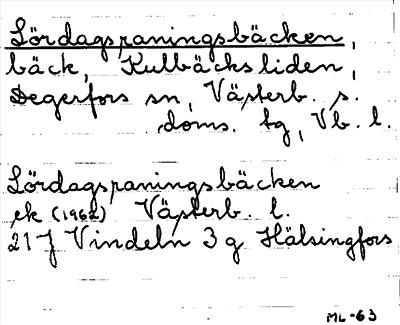 Lördagsraningsbäcken,
bäck, Kulbäcksliden,
Degerfors sn, Västerb. s.
doms. tg, Vb. l.
Lördagsraningsbäcken
ek (1962) Västerb. l.
21 J Vindeln 3 g Hälsingfors
ML-63